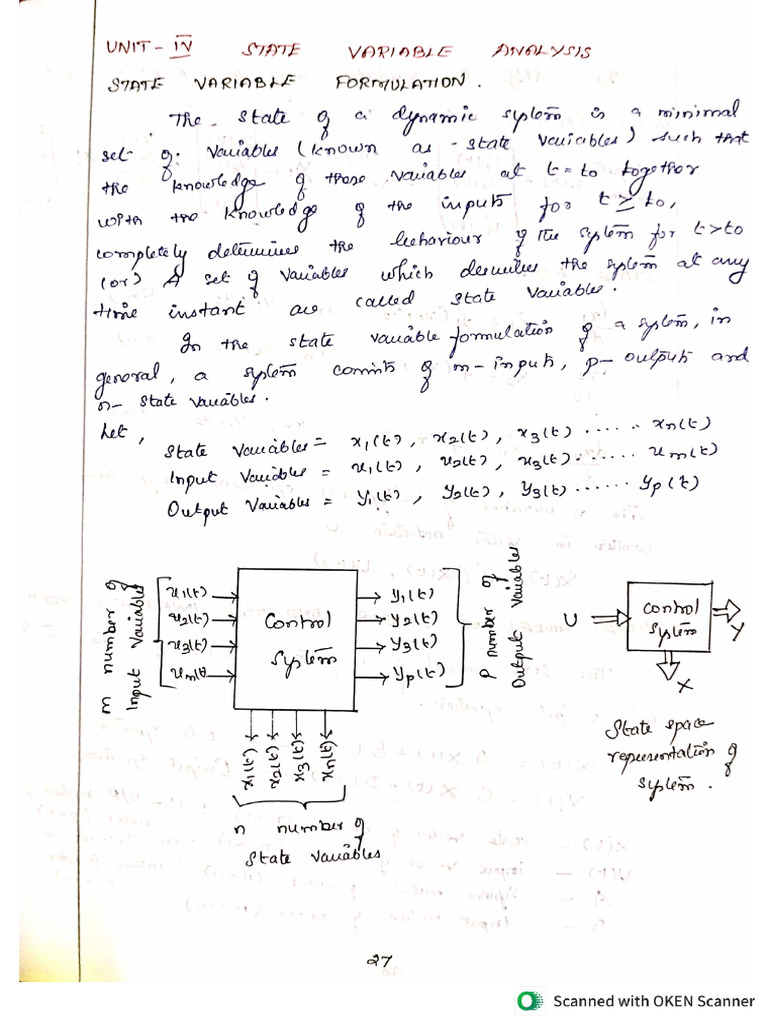 UNIT - IV STATE VARIABLE ANALYSIS
STATE VARIABLE FORMULATION.
The state of a dynamic system is a minimal
set of variables (known as state variables) such that
the knowledge of those variables at t=to together
with the knowledge of the inputs for t ≥ to,
completely determines the behaviour of the system for t>to
(or) A set of variables which describes the system at any
time instant are called state variables.
In the state variable formulation of a system, in
general, a system consists of m-inputs, p-outputs and
n- state variables.
Let,
State Variables = x1(t), x2(t), x3(t) ...... xn(t)
Input Variables = u1(t), u2(t), u3(t) ...... um(t)
Output Variables = y1(t), y2(t), y3(t) ...... yp(t)
m number of
Input Variables
u1(t)
u2(t)
u3(t)
um(t)
Control
System
y1(t)
y2(t)
y3(t)
yp(t)
p number of
Output Variables
x1(t)
x2(t)
x3(t)
xn(t)
n number of
State Variables
U
Control
System
Y
X
State space
representation of
system.
27
Scanned with OKEN Scanner